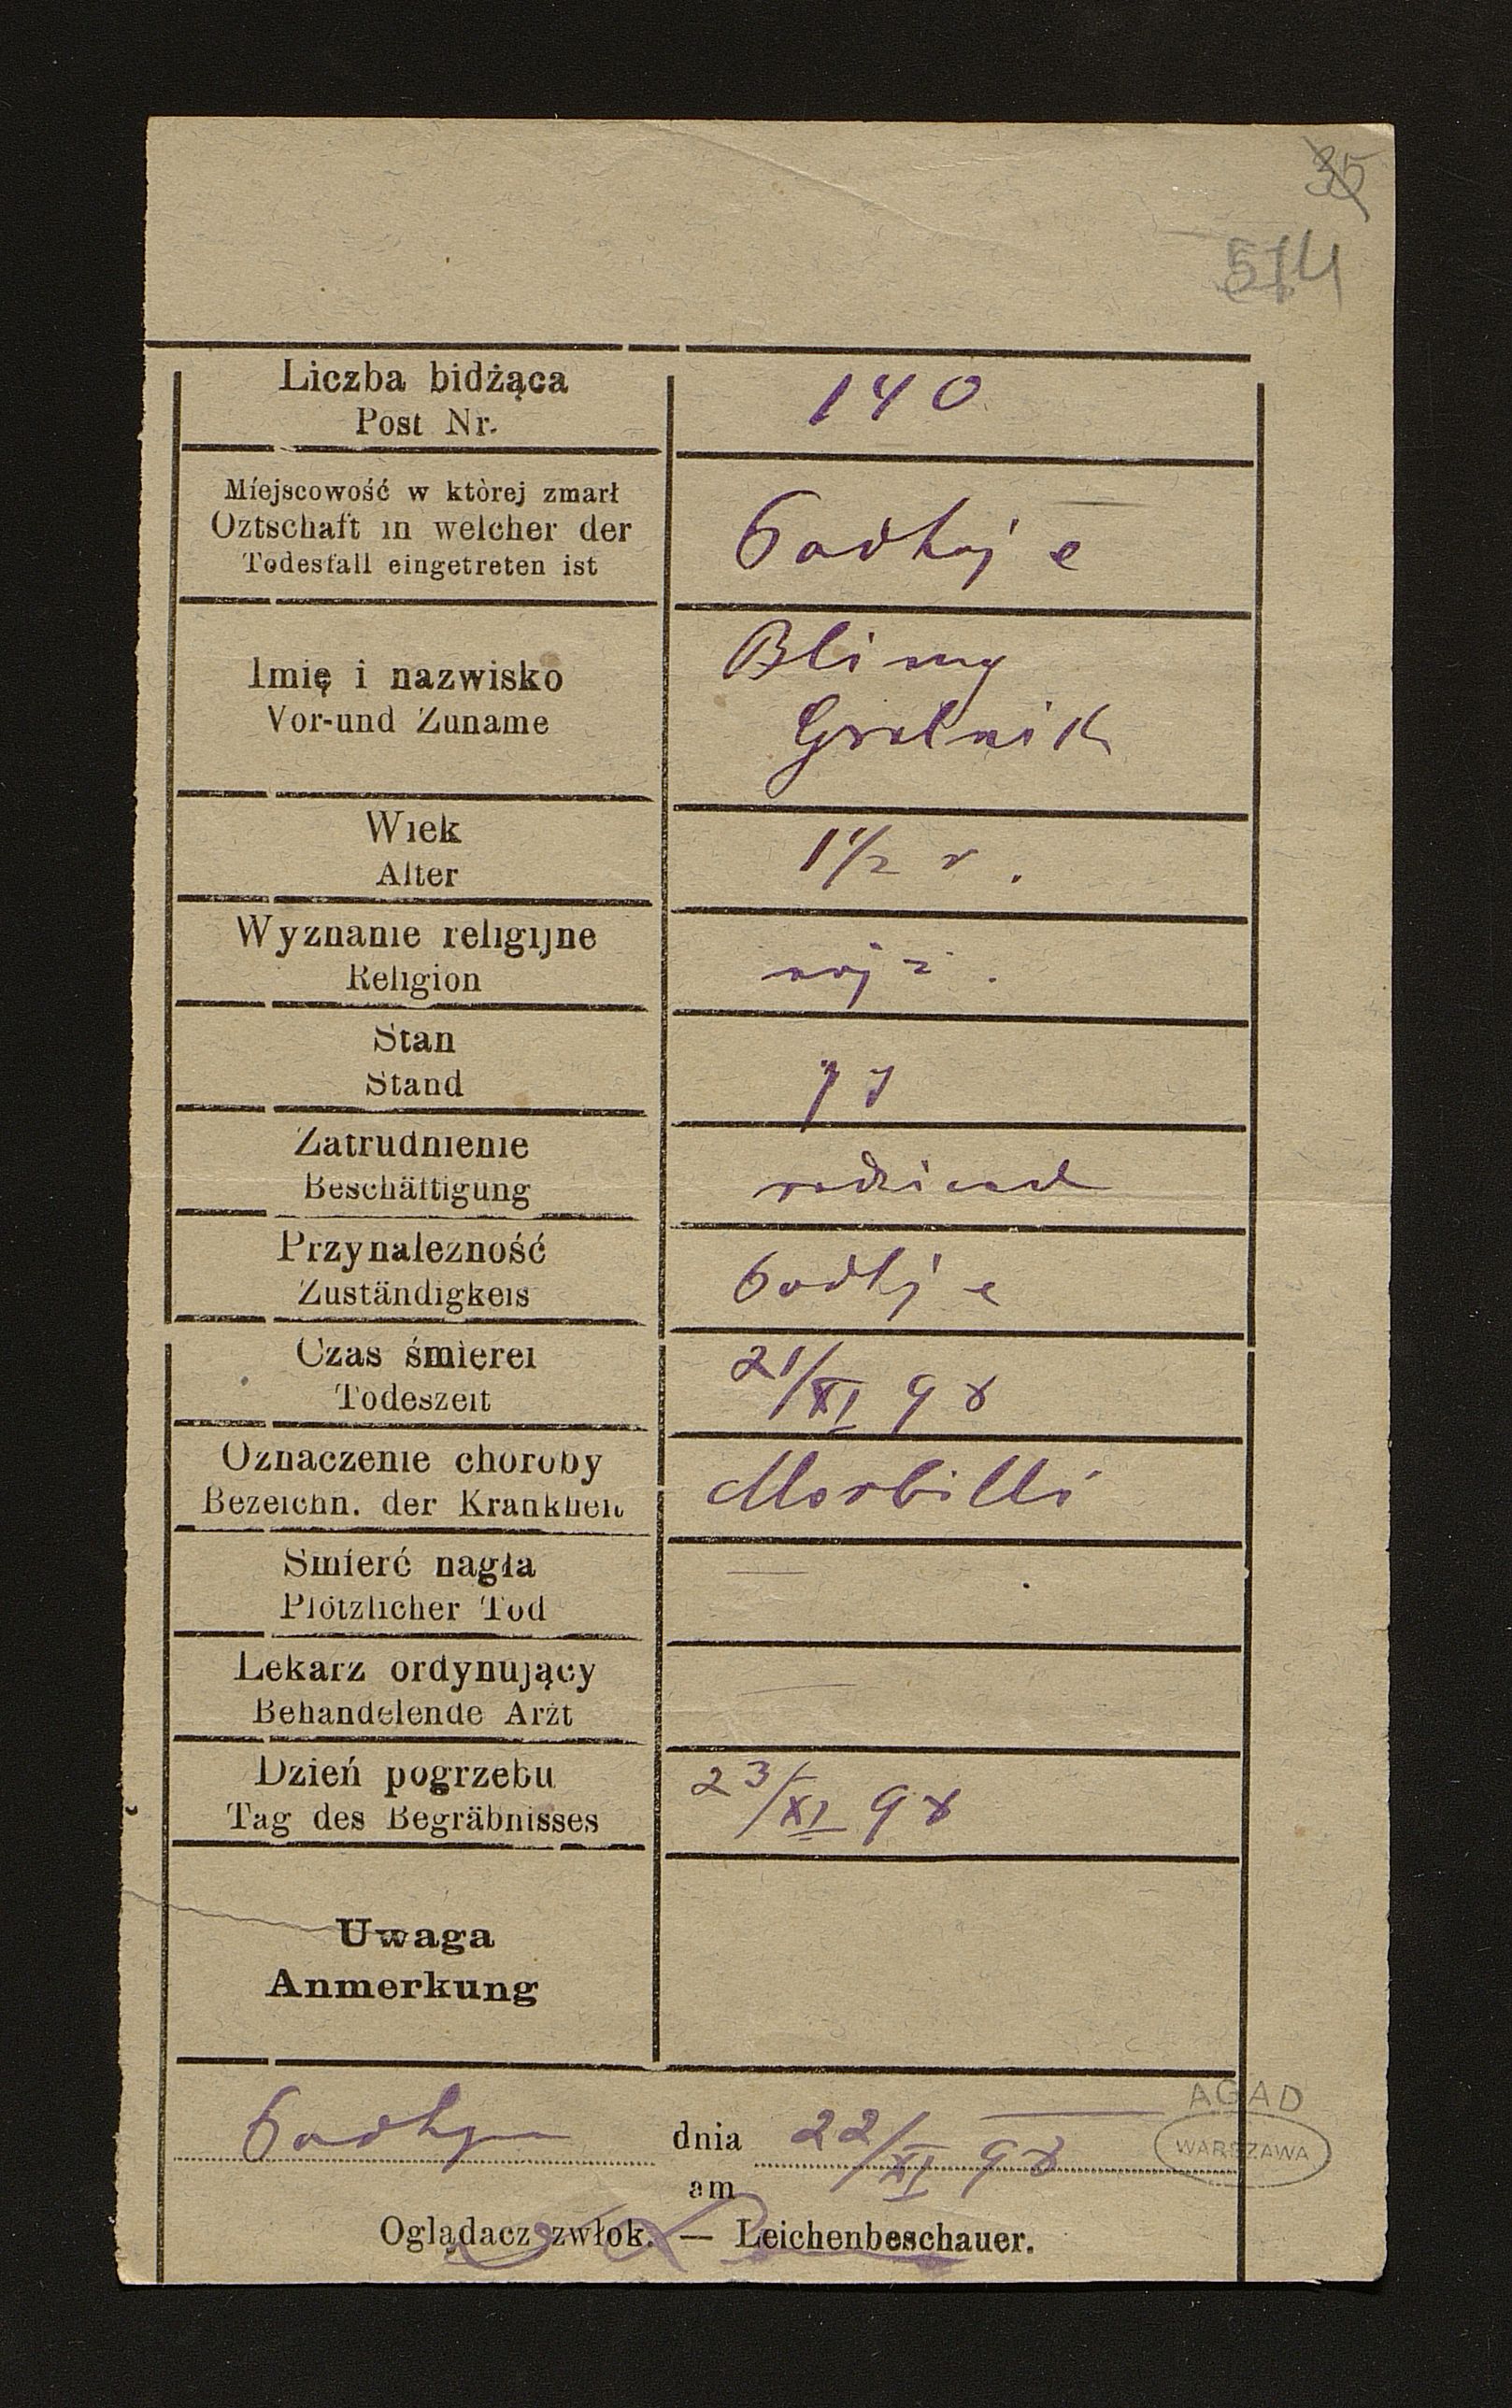 35
574
Liczba bidżąca
Post Nr.
140
Miejscowość w którèj zmarł
Oztschaft in welcher der
Todesfall eingetreten ist
Imię i nazwisko
Vor-und Zuname
Wiek
Alter
1 1/2 r.
Wyznanie religijne
Religion
mojż.
Stan
Stand
Zatrudnienie
Beschäftigung
Przynależność
Zuständigkeis
Czas śmierei
Todeszeit
21/XI 98
Oznaczenie choroby
Bezeichn. der Krankheit
Morbilli
Smierć nagła
Plötzlicher Tod
Lekarz ordynujący
Behandelende Arżt
Dzień pogrzebu
Tag des Begräbnisses
23/XI 98
Uwaga
Anmerkung
dnia 22/XI 98
am
Oglądacz zwłok. — Leichenbeschauer.
AGAD
WARSZAWA